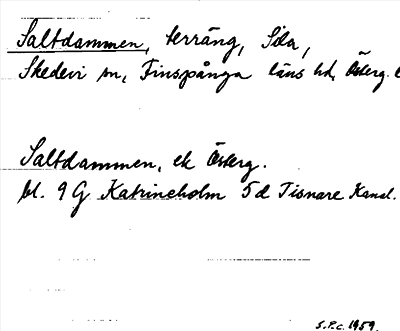 Saltdammen, terräng, Sila,
Skedevi sn, Finspånga läns hd, Österg. l
Saltdammen, ek Österg.
bl. 9 G Katrineholm 5 d Tisnare Kanal.
S.P.c. 1959.